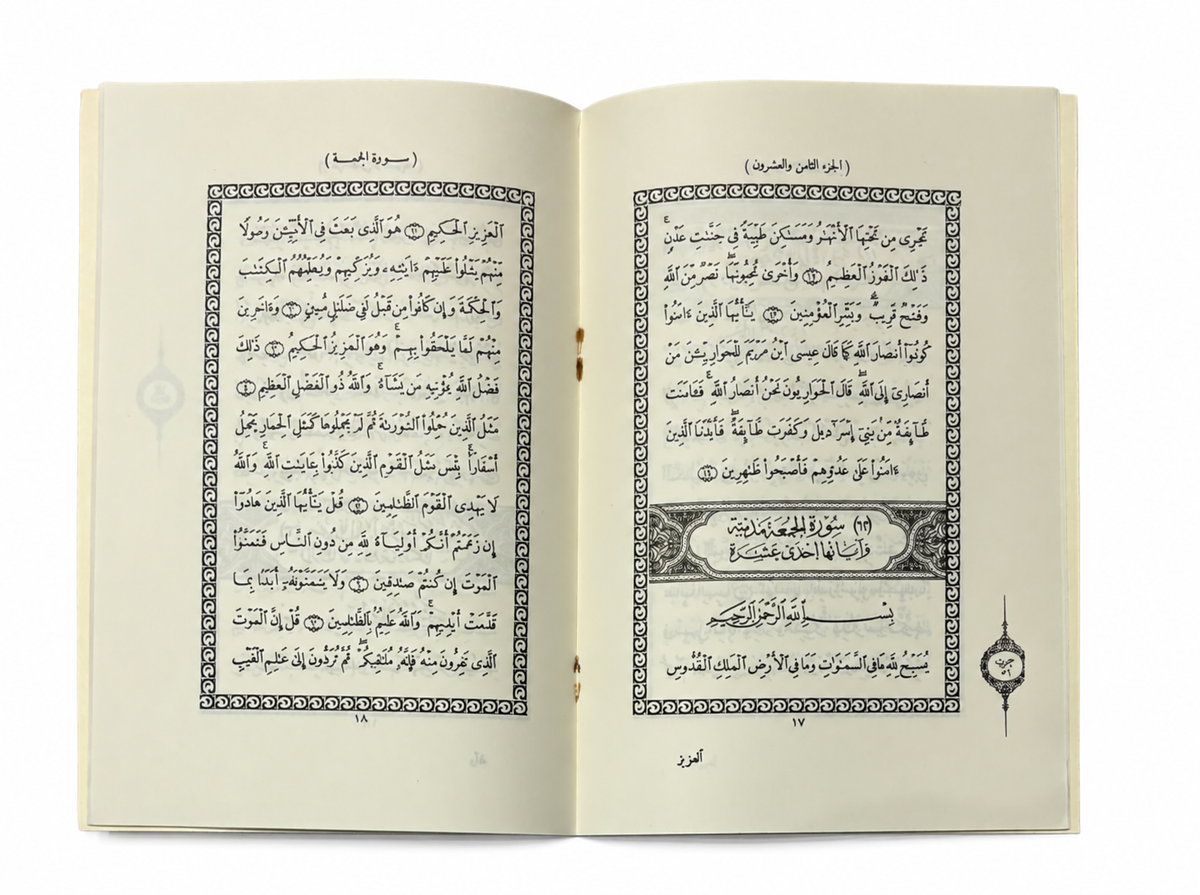 ( الجزء الثامن والعشرون )
تَجْرِى مِن تَحْتِهَا ٱلْأَنْهَٰرُ وَمَسَٰكِنَ طَيِّبَةً فِى جَنَّٰتِ عَدْنٍ ۚ
ذَٰلِكَ ٱلْفَوْزُ ٱلْعَظِيمُ وَأُخْرَىٰ تُحِبُّونَهَا ۖ نَصْرٌ مِّنَ ٱللَّهِ
وَفَتْحٌ قَرِيبٌ ۗ وَبَشِّرِ ٱلْمُؤْمِنِينَ يَٰٓأَيُّهَا ٱلَّذِينَ ءَامَنُوا۟
كُونُوٓا۟ أَنصَارَ ٱللَّهِ كَمَا قَالَ عِيسَى ٱبْنُ مَرْيَمَ لِلْحَوَارِيِّـۧنَ مَنْ
أَنصَارِىٓ إِلَى ٱللَّهِ ۖ قَالَ ٱلْحَوَارِيُّونَ نَحْنُ أَنصَارُ ٱللَّهِ ۖ فَـَٔامَنَت
طَّآئِفَةٌ مِّنۢ بَنِىٓ إِسْرَٰٓءِيلَ وَكَفَرَت طَّآئِفَةٌ ۖ فَأَيَّدْنَا ٱلَّذِينَ
ءَامَنُوا۟ عَلَىٰ عَدُوِّهِمْ فَأَصْبَحُوا۟ ظَٰهِرِينَ
(٦٢) سُورَةُ الجُمُعَةِ مَدَنِيَّة
وَآيَاتُهَا إِحْدَى عَشَرَة
بِسْمِ ٱللَّهِ ٱلرَّحْمَٰنِ ٱلرَّحِيمِ
يُسَبِّحُ لِلَّهِ مَا فِى ٱلسَّمَٰوَٰتِ وَمَا فِى ٱلْأَرْضِ ٱلْمَلِكِ ٱلْقُدُّوسِ
حزب
٥٦
١٧
العزيز
( سورة الجمعة )
ٱلْعَزِيزِ ٱلْحَكِيمِ هُوَ ٱلَّذِى بَعَثَ فِى ٱلْأُمِّيِّـۧنَ رَسُولًا
مِّنْهُمْ يَتْلُوا۟ عَلَيْهِمْ ءَايَٰتِهِۦ وَيُزَكِّيهِمْ وَيُعَلِّمُهُمُ ٱلْكِتَٰبَ
وَٱلْحِكْمَةَ وَإِن كَانُوا۟ مِن قَبْلُ لَفِى ضَلَٰلٍ مُّبِينٍ وَءَاخَرِينَ
مِنْهُمْ لَمَّا يَلْحَقُوا۟ بِهِمْ ۚ وَهُوَ ٱلْعَزِيزُ ٱلْحَكِيمُ ذَٰلِكَ
فَضْلُ ٱللَّهِ يُؤْتِيهِ مَن يَشَآءُ ۚ وَٱللَّهُ ذُو ٱلْفَضْلِ ٱلْعَظِيمِ
مَثَلُ ٱلَّذِينَ حُمِّلُوا۟ ٱلتَّوْرَىٰةَ ثُمَّ لَمْ يَحْمِلُوهَا كَمَثَلِ ٱلْحِمَارِ يَحْمِلُ
أَسْفَارًۢا ۚ بِئْسَ مَثَلُ ٱلْقَوْمِ ٱلَّذِينَ كَذَّبُوا۟ بِـَٔايَٰتِ ٱللَّهِ ۚ وَٱللَّهُ
لَا يَهْدِى ٱلْقَوْمَ ٱلظَّٰلِمِينَ قُلْ يَٰٓأَيُّهَا ٱلَّذِينَ هَادُوٓا۟
إِن زَعَمْتُمْ أَنَّكُمْ أَوْلِيَآءُ لِلَّهِ مِن دُونِ ٱلنَّاسِ فَتَمَنَّوُا۟
ٱلْمَوْتَ إِن كُنتُمْ صَٰدِقِينَ وَلَا يَتَمَنَّوْنَهُۥٓ أَبَدًۢا بِمَا
قَدَّمَتْ أَيْدِيهِمْ ۚ وَٱللَّهُ عَلِيمٌۢ بِٱلظَّٰلِمِينَ قُلْ إِنَّ ٱلْمَوْتَ
ٱلَّذِى تَفِرُّونَ مِنْهُ فَإِنَّهُۥ مُلَٰقِيكُمْ ۖ ثُمَّ تُرَدُّونَ إِلَىٰ عَٰلِمِ ٱلْغَيْبِ
١٨